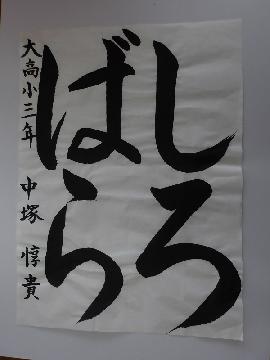 しろ
ばら
大高小三年 中塚惇貴